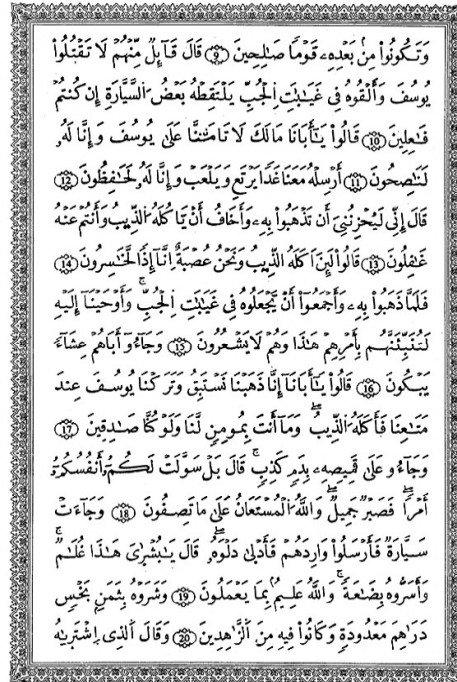 وَتَكُونُواْ مِنۢ بَعْدِهِۦ قَوْمٗا صَٰلِحِينَ ⑨ قَالَ قَآئِلٞ مِّنْهُمْ لَا تَقْتُلُواْ
يُوسُفَ وَأَلْقُوهُ فِى غَيَٰبَٰتِ اِ۬لْجُبِّ يَلْتَقِطْهُ بَعْضُ اُ۬لسَّيَّارَةِ إِن كُنتُمْ
فَٰعِلِينَ ⑩ قَالُواْ يَٰٓأَبَانَا مَا لَكَ لَا تَامَ۬نَّا عَلَىٰ يُوسُفَ وَإِنَّا لَهُۥ
لَنَٰصِحُونَ ⑪ أَرْسِلْهُ مَعَنَا غَدٗا يَرْتَعِ وَيَلْعَبْ وَإِنَّا لَهُۥ لَحَٰفِظُونَ ⑫
قَالَ إِنِّى لَيُحْزِنُنِىَ أَن تَذْهَبُواْ بِهِۦ وَأَخَافُ أَنْ يَّاكُلَهُ اُ۬لذِّيبُ وَأَنتُمْ عَنْهُ
غَٰفِلُونَ ⑬ قَالُواْ لَئِنَ اَكَلَهُ اُ۬لذِّيبُ وَنَحْنُ عُصْبَةٌ اِنَّآ إِذٗا لَّخَٰسِرُونَ ⑭
فَلَمَّا ذَهَبُواْ بِهِۦ وَأَجْمَعُوٓاْ أَنْ يَّجْعَلُوهُ فِى غَيَٰبَٰتِ اِ۬لْجُبِّ وَأَوْحَيْنَآ إِلَيْهِ
لَتُنَبِّئَنَّهُم بِأَمْرِهِمْ هَٰذَا وَهُمْ لَا يَشْعُرُونَ ⑮ وَجَآءُو أَبَاهُمْ عِشَآءٗ
يَبْكُونَ ⑯ قَالُواْ يَٰٓأَبَانَآ إِنَّا ذَهَبْنَا نَسْتَبِقُ وَتَرَكْنَا يُوسُفَ عِندَ
مَتَٰعِنَا فَأَكَلَهُ اُ۬لذِّيبُ وَمَآ أَنتَ بِمُومِنٖ لَّنَا وَلَوْ كُنَّا صَٰدِقِينَ ⑰
وَجَآءُو عَلَىٰ قَمِيصِهِۦ بِدَمٖ كَذِبٖ قَالَ بَلْ سَوَّلَتْ لَكُمُۥٓ أَنفُسُكُمُۥٓ
أَمْرٗا فَصَبْرٞ جَمِيلٞ وَاللَّهُ اُ۬لْمُسْتَعَانُ عَلَىٰ مَا تَصِفُونَ ⑱ وَجَآءَتْ
سَيَّارَةٞ فَأَرْسَلُواْ وَارِدَهُمْ فَأَدْلَىٰ دَلْوَهُۥ قَالَ يَٰبُشْرِىَ هَٰذَا غُلَٰمٞ
وَأَسَرُّوهُ بِضَٰعَةٗ وَاللَّهُ عَلِيمُۢ بِمَا يَعْمَلُونَ ⑲ وَشَرَوْهُ بِثَمَنِۢ بَخْسٖ
دَرَٰهِمَ مَعْدُودَةٖ وَكَانُواْ فِيهِ مِنَ اَ۬لزَّٰهِدِينَ ⑳ وَقَالَ اَ۬لَّذِى اِ۪شْتَرَىٰهُ